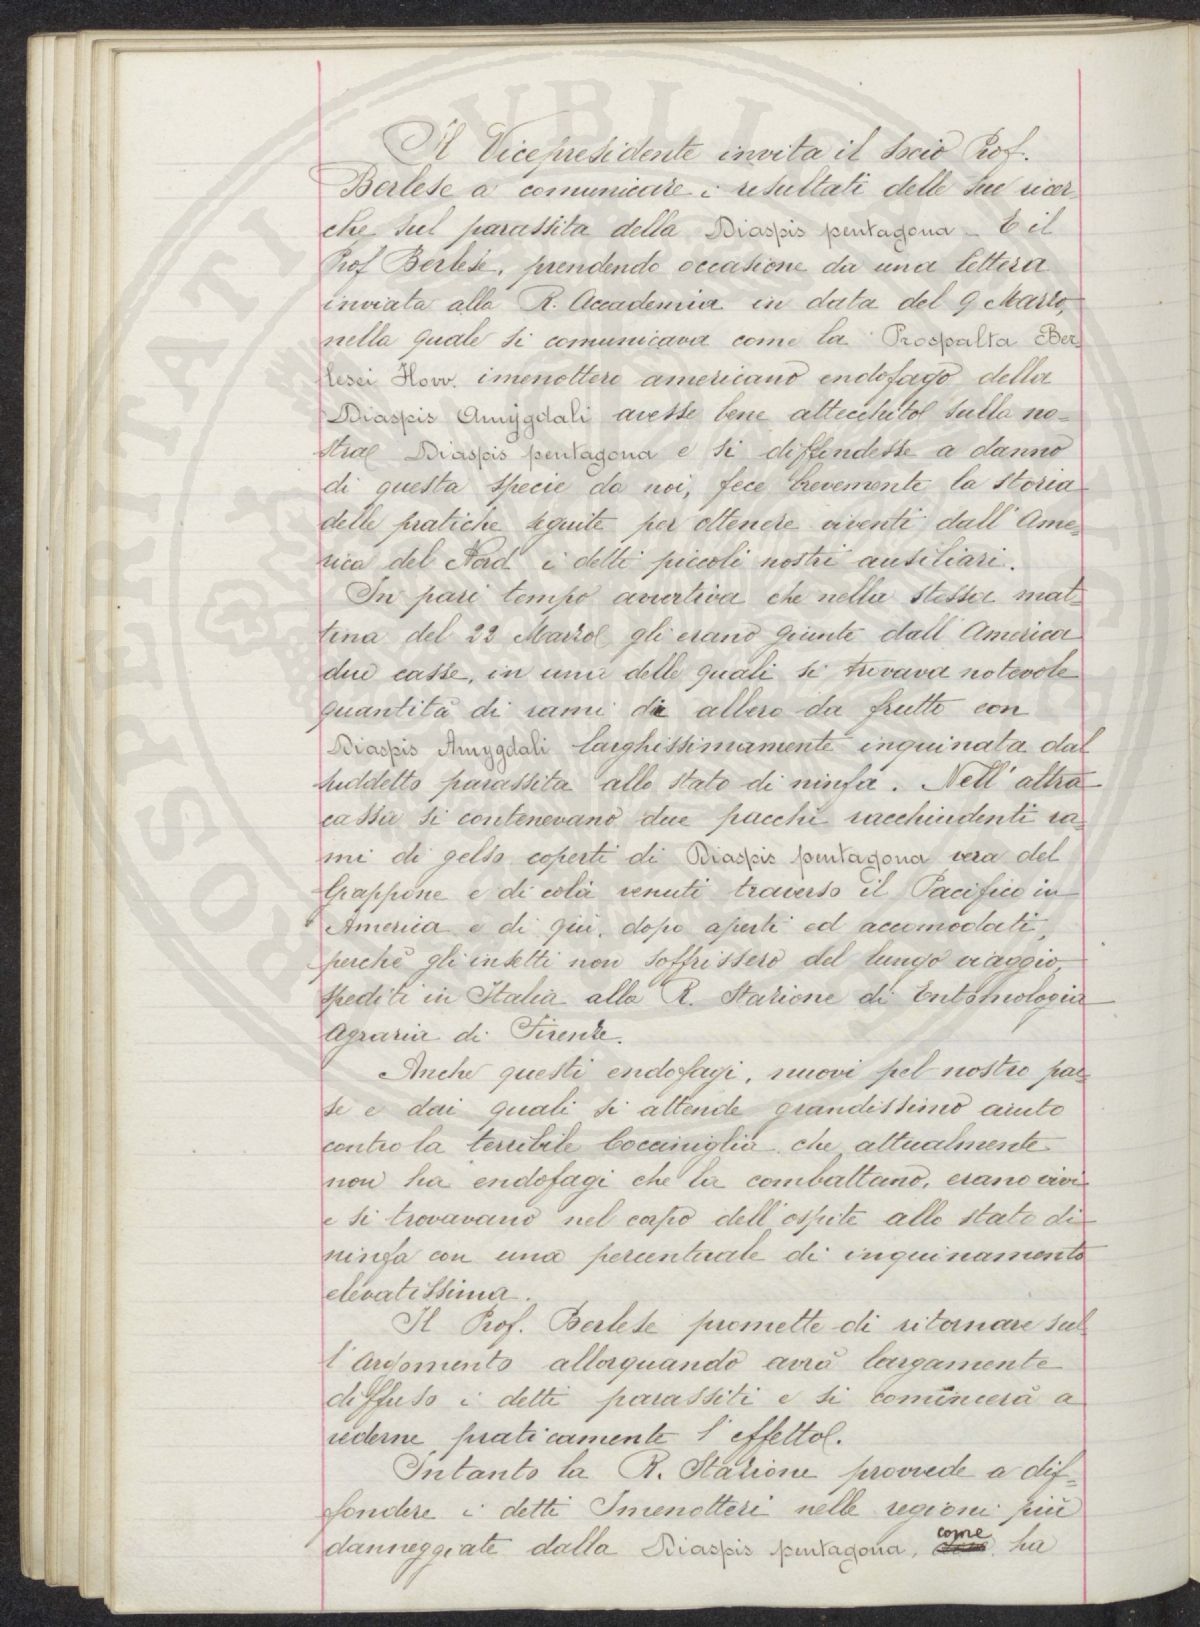 Il Vicepresidente invita il socio Prof.
Berlese a comunicare i resultati delle sue ricer-
che sul parassita della Diaspis pentagona - E il
Prof Berlese, prendendo occasione da una lettera
inviata alla R. Accademia in data del 9 Marzo,
nella quale si comunicava come la Prospalta Ber
lesei How. imenottero americano endofago della
Diaspis Amygdali avesse bene attecchito sulla no-
stra Diaspis pentagona e si diffendesse a danno
di questa specie da noi, fece brevemente la storia
delle pratiche seguite per ottenere viventi dall'Ame-
rica del Nord i detti piccoli nostri ausiliari.
In pari tempo avvertiva che nella stessa mat-
tina del 22 Marzo gli erano giunte dall'America
due casse, in una delle quali si trovava notevole
quantità di rami di albero da frutto con
Diaspis Amygdali larghissimamente inquinata dal
suddetto parassita allo stato di ninfa. Nell'altra
cassa si contenevano due pacchi racchiudenti ra-
mi di gelso coperti di Diaspis pentagona vera del
Giappone e di colà venuti traverso il Pacifico in
America e di qui, dopo aperti ed accomodati,
perchè gli insetti non soffrissero del lungo viaggio,
spediti in Italia alla R. Stazione di Entomologia
Agraria di Firenze.
Anche questi endofagi, nuovi pel nostro pae-
se e dai quali si attende grandissimo aiuto
contro la terribile Cocciniglia che attualmente
non ha endofagi che la combattano, erano vivi
e si trovavano nel corpo dell'ospite allo stato di
ninfa con una percentuale di inquinamento
elevatissima.
Il Prof. Berlese promette di ritornare sul
l'argomento allorquando avrà largamente
diffuso i detti parassiti e si comincerà a
vederne praticamente l'effetto.
Intanto la R. Stazione provvede a dif-
fondere i detti Imenotteri nelle regioni più
danneggiate dalla Diaspis pentagona, come ha
PROSPERITATI PVBLICAE